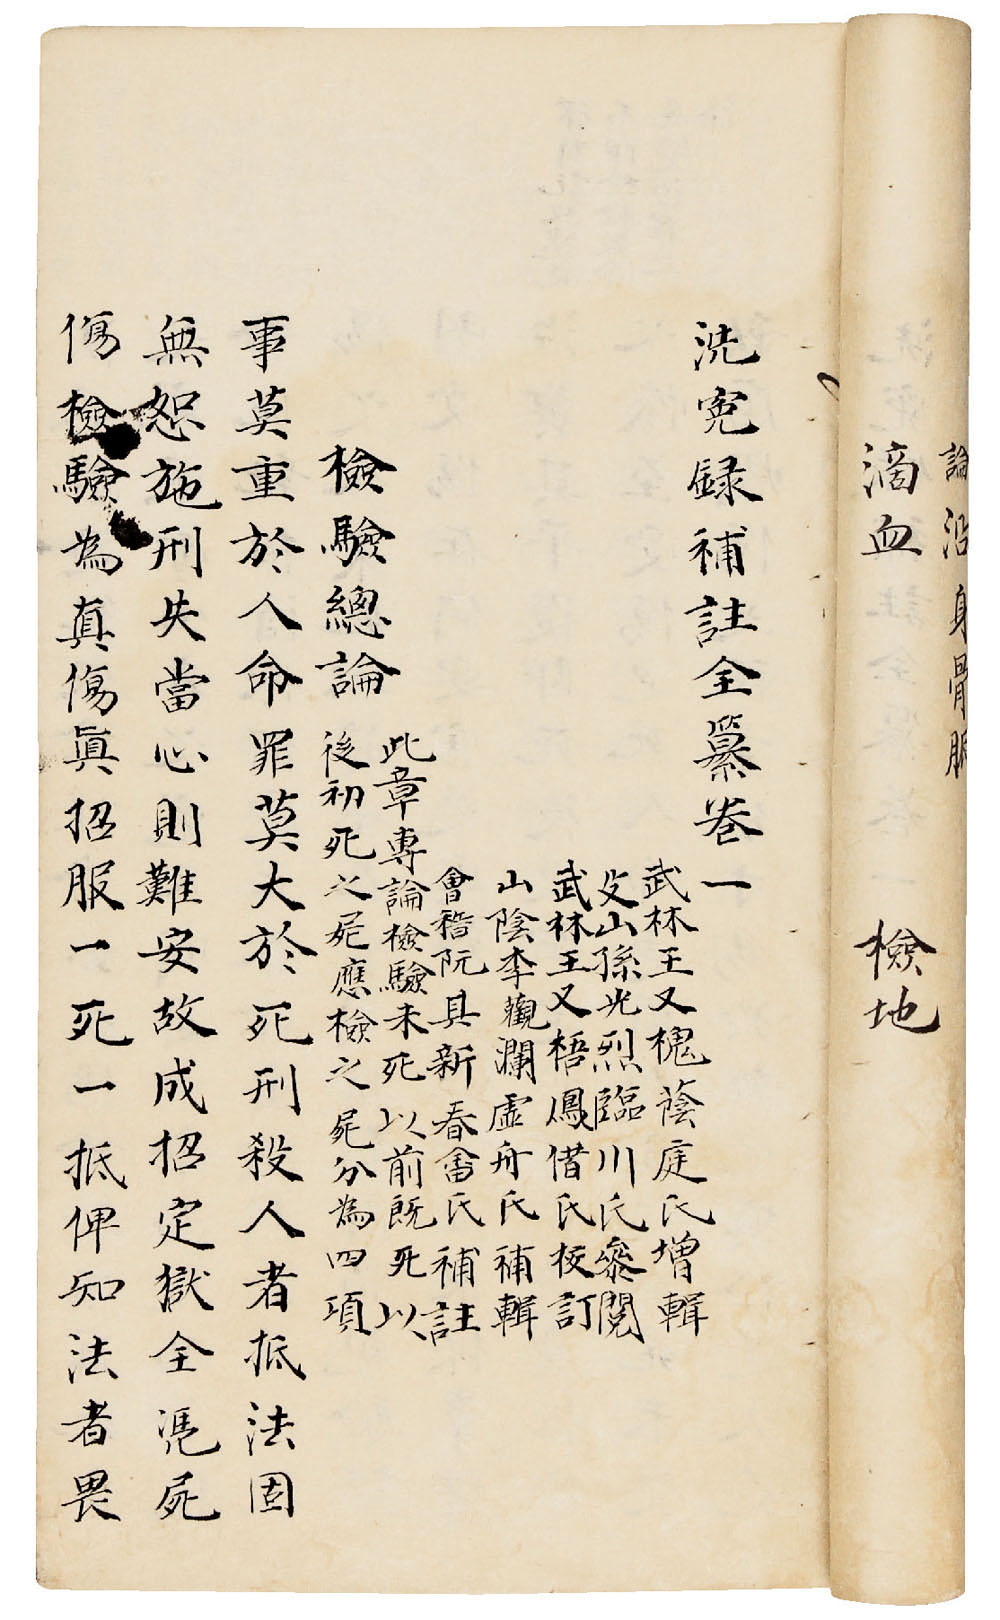 論沿身骨脈
滴血　檢地
洗寃録補註全纂卷一
武林王又槐蔭庭氏增輯
山孫光烈臨川氏叅閱
武林王又梧鳳偕氏校訂
山陰李觀瀾虛舟氏補輯
會稽阮具新春畬氏補註
檢驗總論
此章專論檢驗未死以前既死以
後初死之屍應檢之屍分為四項
事莫重於人命罪莫大於死刑殺人者抵法固
無恕施刑失當心則難安故成招定獄全凴屍
傷檢驗為真傷眞招服一死一抵俾知法者畏